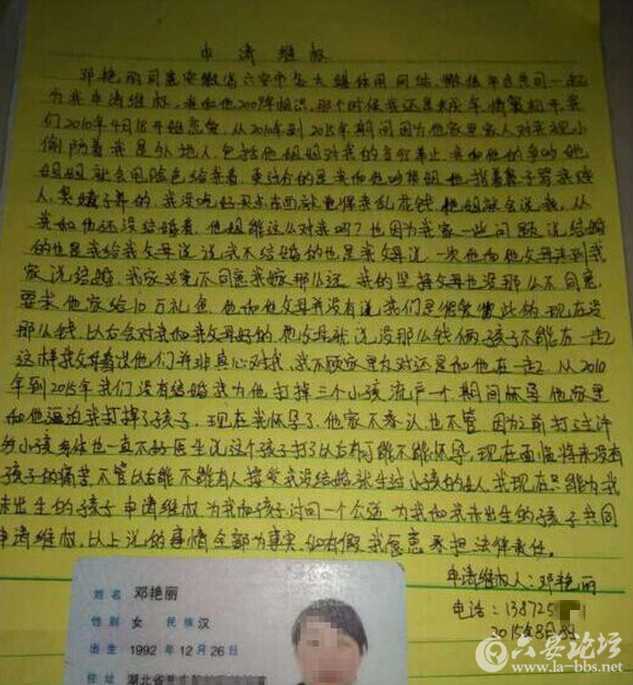 申请维权
邓艳丽同意安徽省六安市各大媒体用网络,微信平台共同一起
为我申请维权,我和他2007年相识,那个时候我还是未成年情窦初开,我
们2010年4月18开始恋爱,从2010年到2015年期间因为他家里家人对我视小
偷防着我是外地人,包括他姐姐对我的言行举止,我和他的争吵她
姐姐就会用脸色给我看,更过分的是我和他吵架姐也指着鼻子骂我贱
人,臭婊子养的,我没吃好买点东西就觉得我乱花钱他姐就会说我,从
我和他还没结婚看,他姐能这么对我吗?也因为我家一些问题说结婚
的也是我给我父母说,说我不结婚的也是我父母说,一次他和他父母来到我
家说结婚,我家父母不同意我嫁那么远,我的坚持父母也没那么不同意,
要求他家给10万礼金,他和他父母并没有说我们是 彼此的现在没
那么钱,以后会对我和我父母好的,他父母就说没那么钱俩孩子不能在一起
这样我父母看出他们并非真心对我,我不顾家里反对还是和他在一起,从2010
年到2015年我们没有结婚我为他打掉三个小孩,流产一个,期间怀孕他家里
和他逼迫我打掉了孩子,现在我怀孕了,他家不承认,也不管,因为之前打过
的小孩身体也一直不好医生说这个孩子打了以后有可能不能怀孕,现在面临将来没有
孩子的痛苦,不管以后能不能有人接受我没结婚就生过小孩的女人,我现在只能为我
未出生的孩子申请维权,为我和孩子讨回一个公道,为我和我未出生的孩子共同
申请维权,以上说的事情全部为事实,如有假我愿意承担法律责任。
申请维权人:邓艳丽
电话:138725
2015年8月
姓名 邓艳丽
性别 女 民族 汉
出生 1992年12月26日
住址 湖北省
六安论坛
www.la-bbs.net